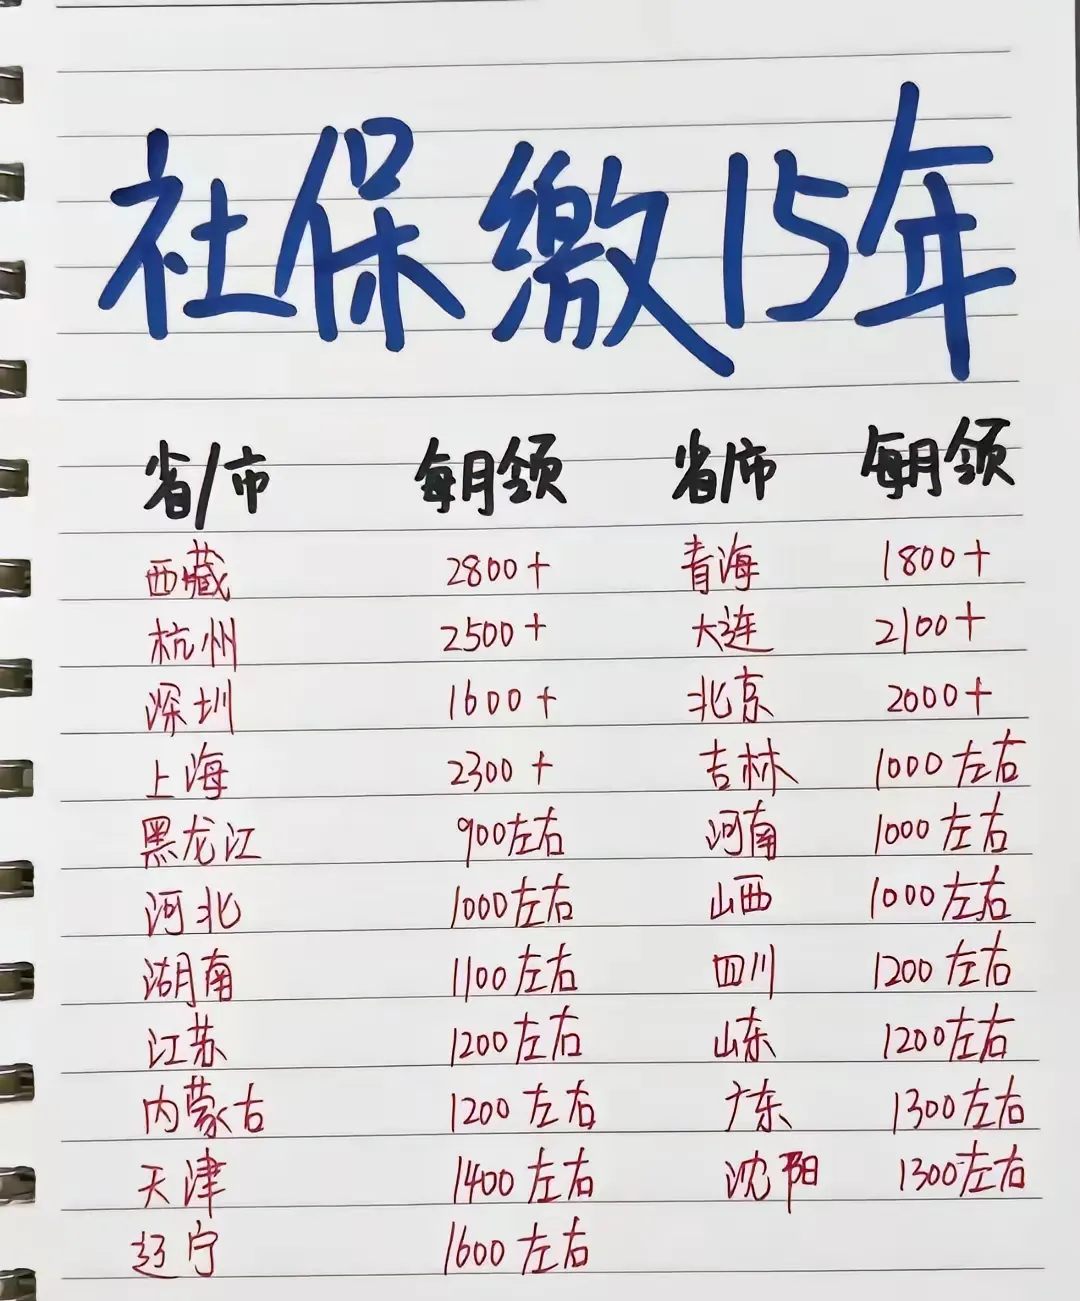 社保缴15年
省/市 每月领 省/市 每月领
西藏 2800+ 青海 1800+
杭州 2500+ 大连 2100+
深圳 1600+ 北京 2000+
上海 2300+ 吉林 1000左右
黑龙江 900左右 河南 1000左右
河北 1000左右 山西 1000左右
湖南 1100左右 四川 1200左右
江苏 1200左右 山东 1200左右
内蒙古 1200左右 广东 1300左右
天津 1400左右 沈阳 1300左右
辽宁 1600左右